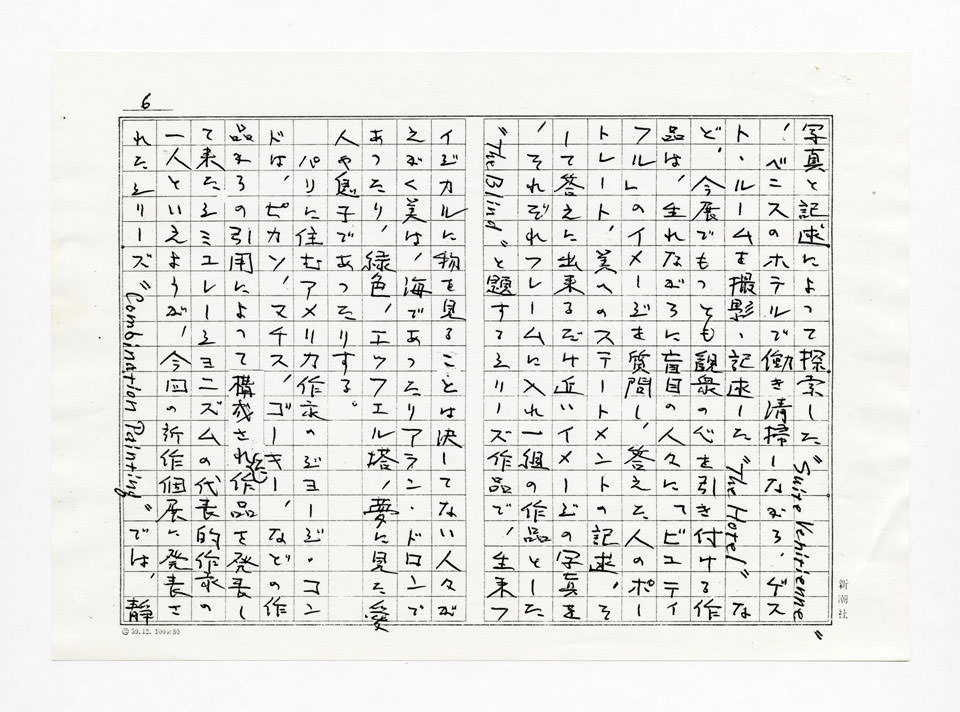 6
写真と記述によって探索した"Suite Venitienne"
、ベニスのホテルで働き清掃しながら、ゲス
ト・ルームを撮影・記述した"The Hotel"な
ど、今展でもっとも観衆の心を引き付ける作
品は、生れながらに盲目の人々に「ビュティ
フル」のイメージを質問し、答えた人のポー
トレート、美へのステートメントの記述、そ
して答えに出来るだけ近いイメージの写真を
、それぞれフレームに入れ一組の作品とした
"The Blind"と題するシリーズ作品で、生来フ
ィジカルに物を見ることは決してない人々が
えがく美は、海であったりアラン・ドロンで
あったり、緑色、エッフェル塔、夢に見た愛
人や息子であったりする。
パリに住むアメリカ作家のジョージ・コン
ドは、ピカソ、マチス、ゴーキー、などの作
品からの引用によって構成された作品を発表し
て来たシミュレーショニズムの代表的作家の
一人といえようが、今回の新作個展に発表さ
れたシリーズ"Combination Painting"では、静
新潮社